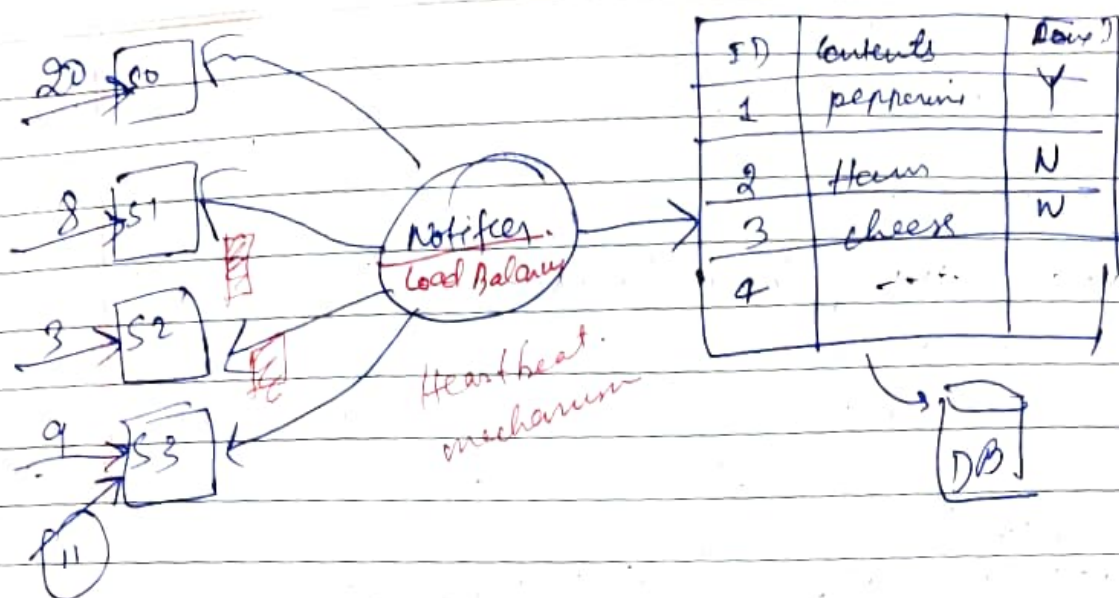 20 S0
8 S1
3 S2
9 S3
11
Notifier.
Load Balancer
Heartbeat
mechanism
ID Contents Done?
1 pepperoni Y
2 Ham N
3 cheese N
4 .....
DB